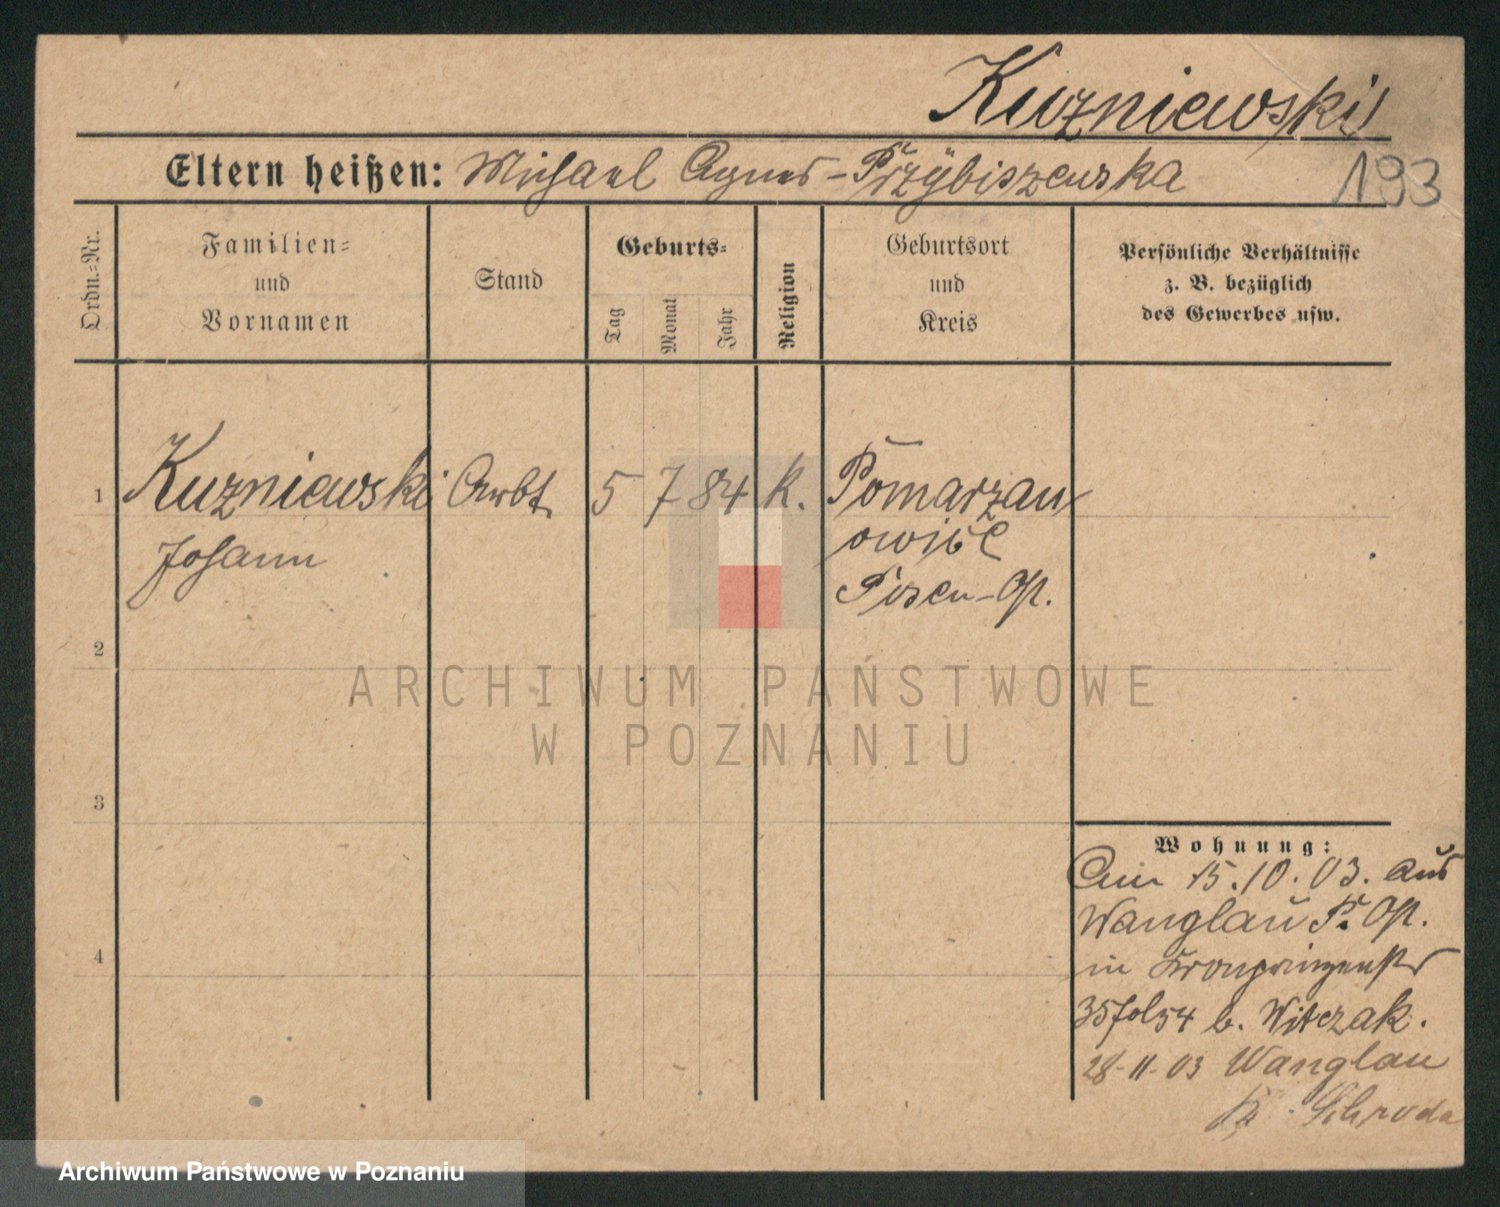 Kuzniewski
Eltern heißen: Michael Agnes - Przybiszewska
193
Ordn.-Nr.
Familien-
und
Vornamen
Stand
Geburts-
Tag
Monat
Jahr
Religion
Geburtsort
und
Kreis
Persönliche Verhältnisse
z. B. bezüglich
des Gewerbes usw.
1 Kuzniewski Arbt. 5 7 84 K. Pomarzan
Johann
owice
Posen-Ost.
2
3
4
Wohnung:
15.10.03. aus
Wanglau P. Ost.
in Kronprinzenstr
35 b. Witczak.
28-11-03 Wanglau
Schroda
ARCHIWUM PAŃSTWOWE
W POZNANIU
Archiwum Państwowe w Poznaniu